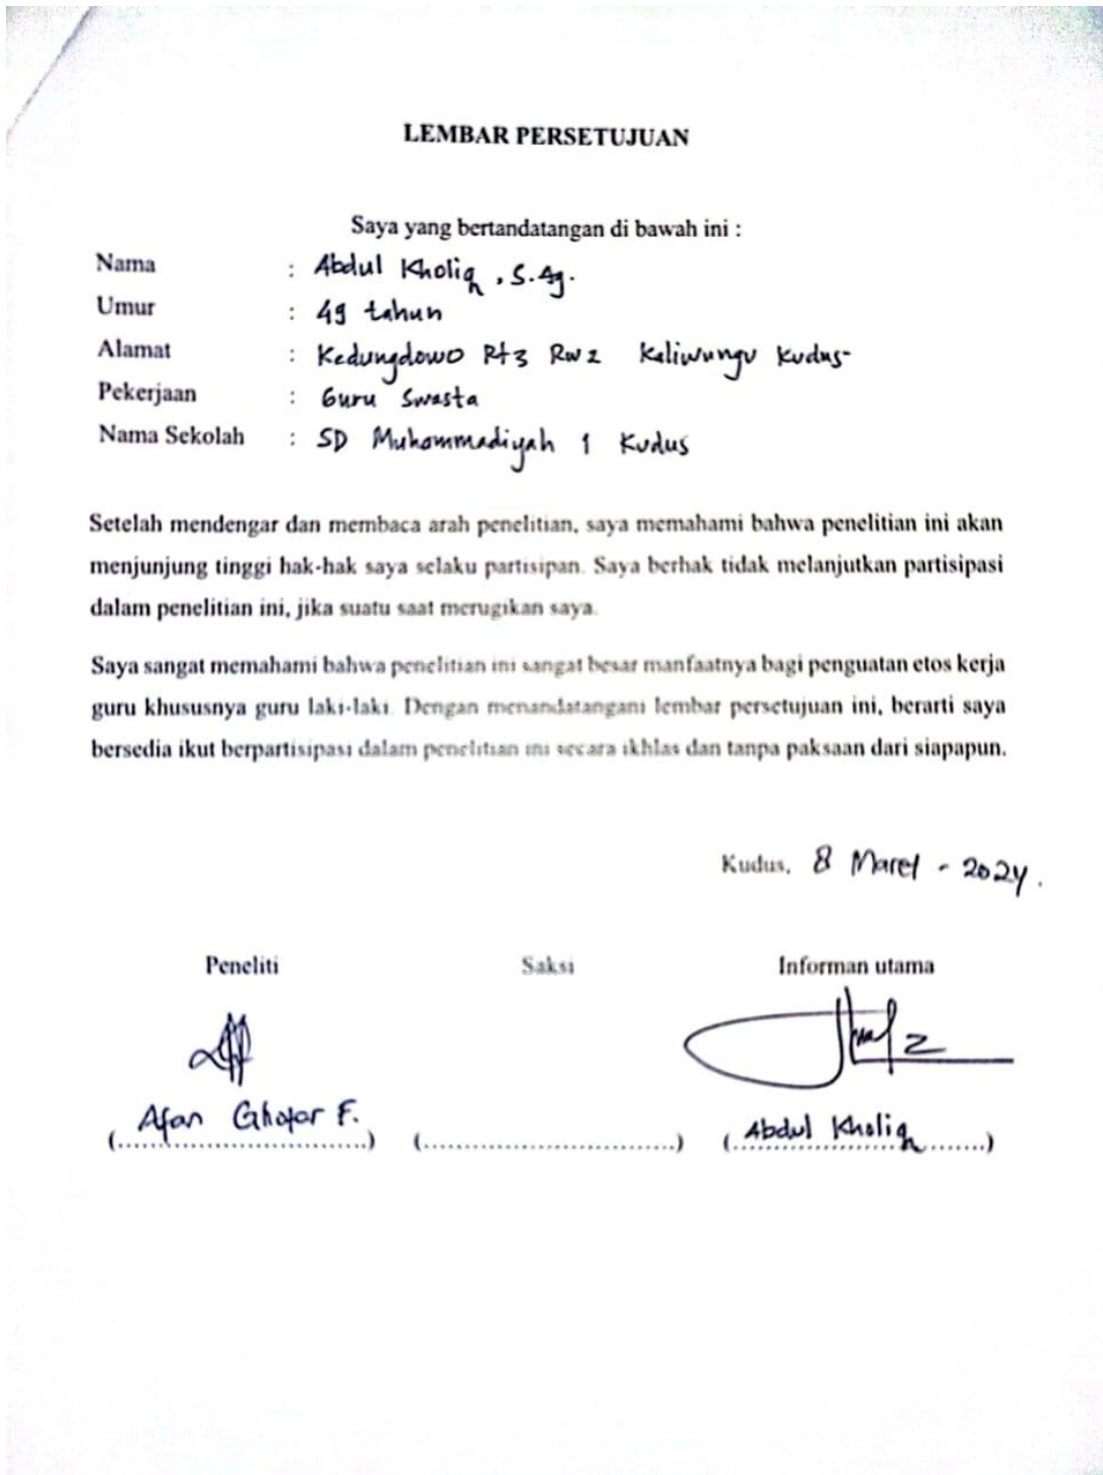 LEMBAR PERSETUJUAN
Saya yang bertandatangan di bawah ini :
Nama : Abdul Kholiq, S.Ag.
Umur : 49 tahun
Alamat : Kedungdowo Rt3 Rw2 Kaliwungu Kudus
Pekerjaan : Guru Swasta
Nama Sekolah : SD Muhammadiyah 1 Kudus
Setelah mendengar dan membaca arah penelitian, saya memahami bahwa penelitian ini akan
menjunjung tinggi hak-hak saya selaku partisipan. Saya berhak tidak melanjutkan partisipasi
dalam penelitian ini, jika suatu saat merugikan saya.
Saya sangat memahami bahwa penelitian ini sangat besar manfaatnya bagi penguatan etos kerja
guru khususnya guru laki-laki. Dengan menandatangani lembar persetujuan ini, berarti saya
bersedia ikut berpartisipasi dalam penelitian ini secara ikhlas dan tanpa paksaan dari siapapun.
Kudus, 8 Maret - 2024.
Peneliti Saksi Informan utama
(Afan Ghofar F.) (..............................) (Abdul Kholiq)